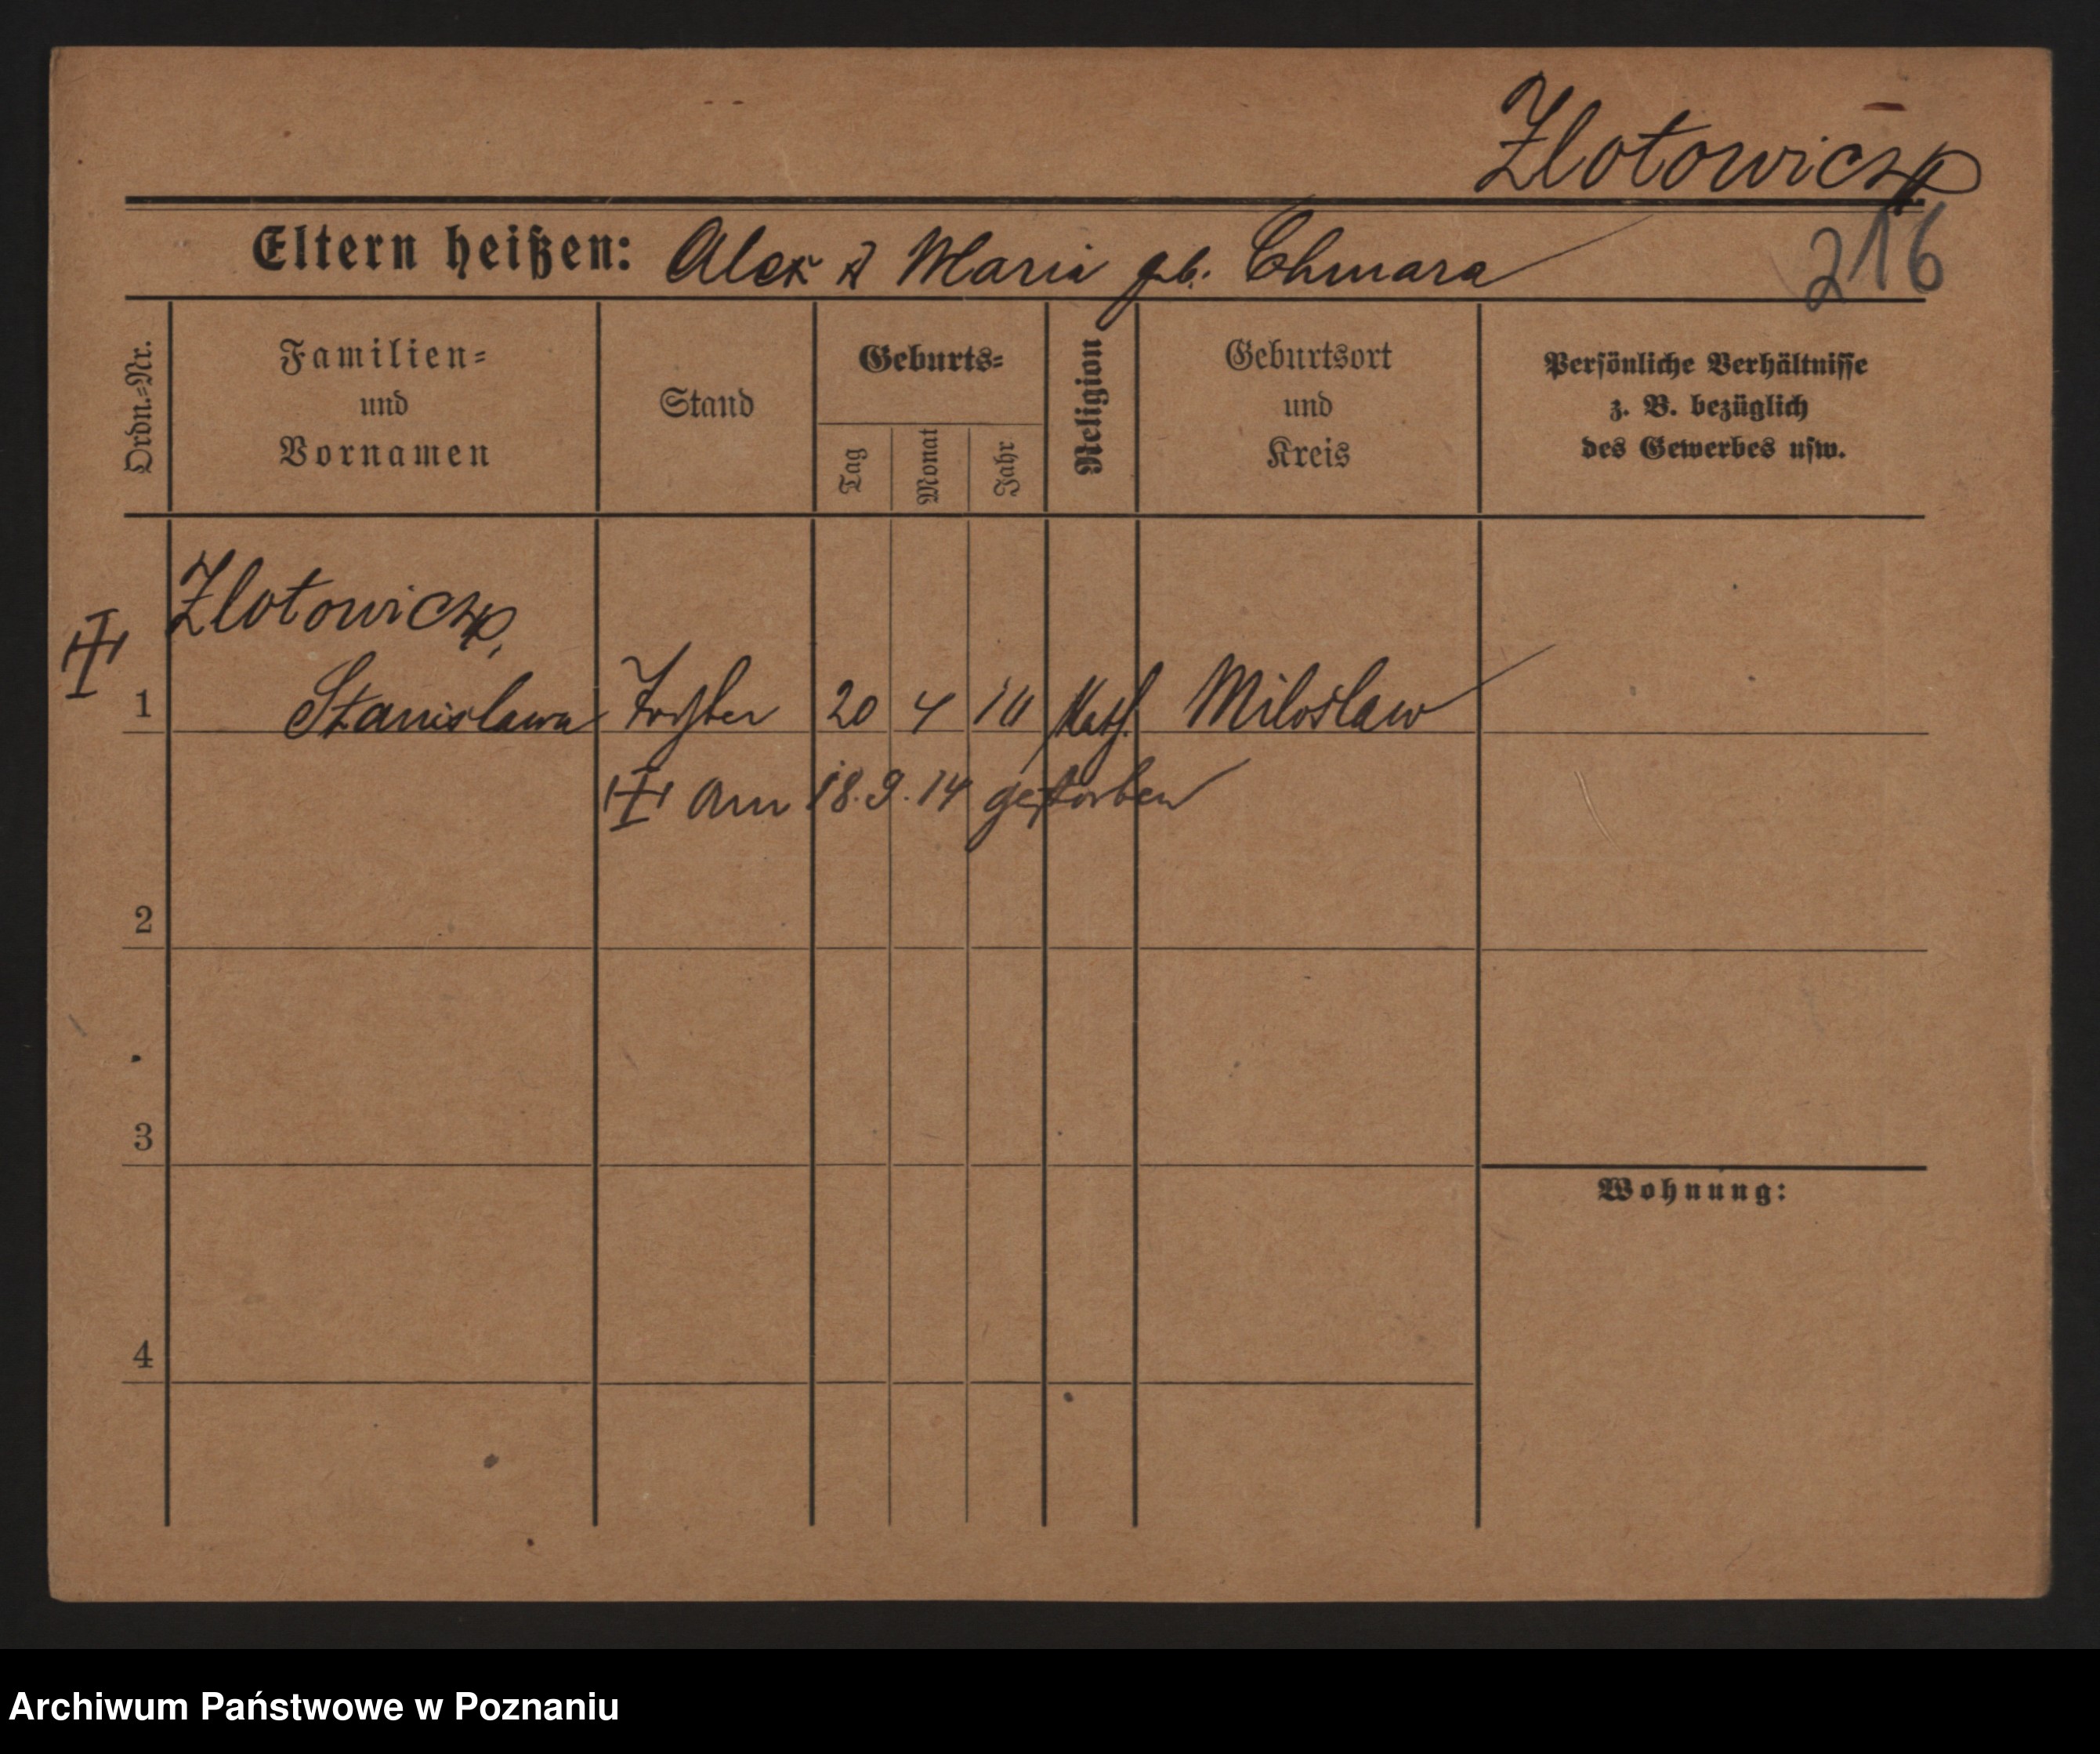 Zlotowicz
Eltern heißen: Alex & Maria gb. Chmara
216
Ordn.=Nr.
Familien=
und
Vornamen
Stand
Geburts=
Tag
Monat
Jahr
Religion
Geburtsort
und
Kreis
Persönliche Verhältnisse
z. B. bezüglich
des Gewerbes usw.
Zlotowicz,
1 Stanislawa Tochter 20 4 Kath. Miloslaw
am 18.9.14 gestorben
2
3
Wohnung:
4
Archiwum Państwowe w Poznaniu